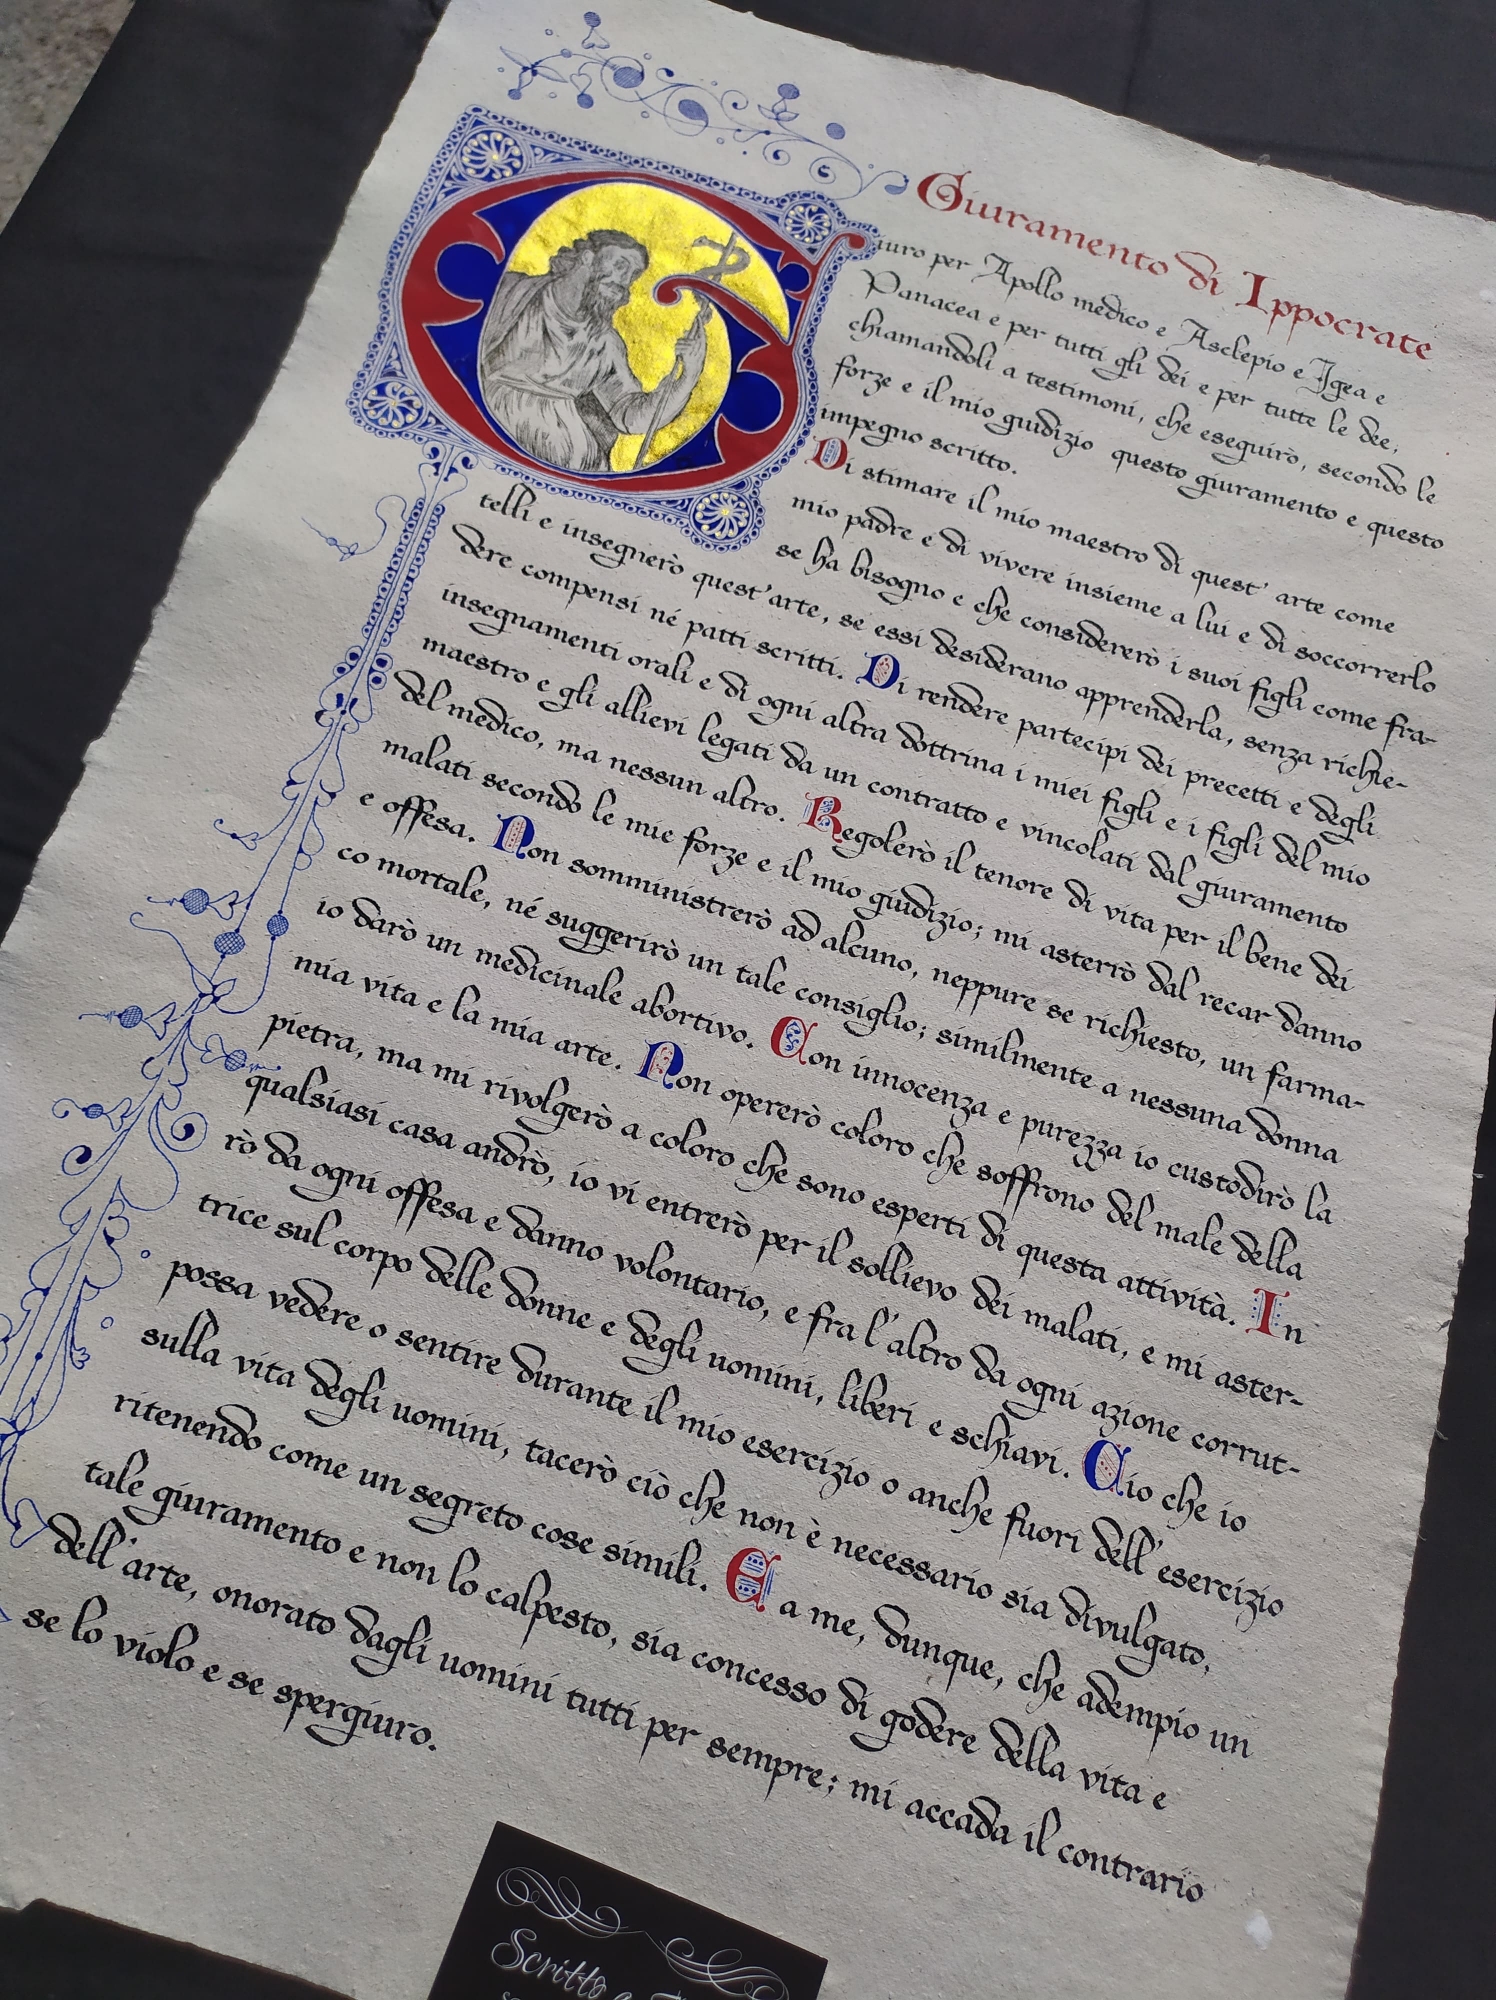 Giuramento di Ippocrate
Giuro per Apollo medico e Asclepio e Igea e
Panacea e per tutti gli dei e per tutte le dee,
chiamandoli a testimoni, che eseguirò, secondo le
forze e il mio giudizio questo giuramento e questo
impegno scritto.
Di stimare il mio maestro di quest' arte come
mio padre e di vivere insieme a lui e di soccorrerlo
se ha bisogno e che considererò i suoi figli come fra-
telli e insegnerò quest'arte, se essi desiderano apprenderla, senza richie-
dere compensi né patti scritti. Di rendere partecipi dei precetti e degli
insegnamenti orali e di ogni altra dottrina i miei figli e i figli del mio
maestro e gli allievi legati da un contratto e vincolati dal giuramento
del medico, ma nessun altro. Regolerò il tenore di vita per il bene dei
malati secondo le mie forze e il mio giudizio; mi asterrò dal recar danno
e offesa. Non somministrerò ad alcuno, neppure se richiesto, un farma-
co mortale, né suggerirò un tale consiglio; similmente a nessuna donna
io darò un medicinale abortivo. Con innocenza e purezza io custodirò la
mia vita e la mia arte. Non opererò coloro che soffrono del male della
pietra, ma mi rivolgerò a coloro che sono esperti di questa attività. In
qualsiasi casa andrò, io vi entrerò per il sollievo dei malati, e mi aster-
rò da ogni offesa e danno volontario, e fra l'altro da ogni azione corrut-
trice sul corpo delle donne e degli uomini, liberi e schiavi. Cio che io
possa vedere o sentire durante il mio esercizio o anche fuori dell'esercizio
sulla vita degli uomini, tacerò ciò che non è necessario sia divulgato,
ritenendo come un segreto cose simili. E a me, dunque, che adempio un
tale giuramento e non lo calpesto, sia concesso di godere della vita e
dell'arte, onorato dagli uomini tutti per sempre; mi accada il contrario
se lo violo e se spergiuro.
Scritto